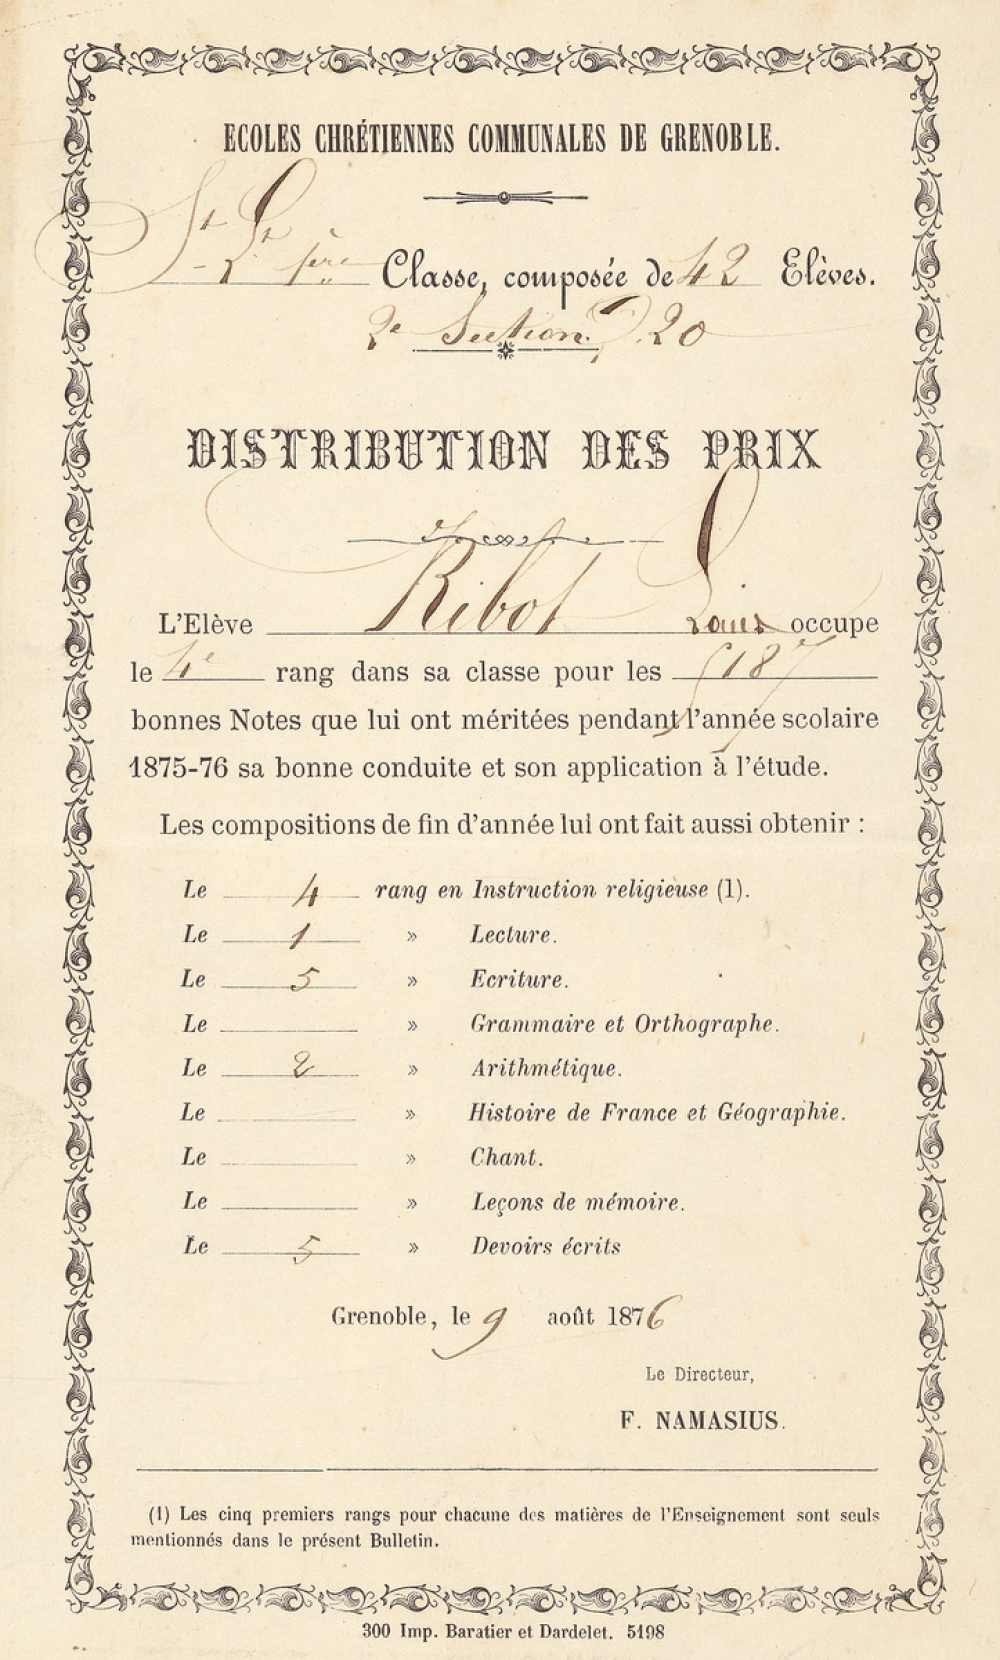 ECOLES CHRÉTIENNES COMMUNALES DE GRENOBLE.
St Lt 1ère Classe, composée de 42 Elèves.
2e Section. 20
DISTRIBUTION DES PRIX
L'Elève Ribot Louis occupe
le 4e rang dans sa classe pour les 5187
bonnes Notes que lui ont méritées pendant l'année scolaire
1875-76 sa bonne conduite et son application à l'étude.
Les compositions de fin d'année lui ont fait aussi obtenir :
Le 4 rang en Instruction religieuse (1).
Le 1 » Lecture.
Le 5 » Ecriture.
Le » Grammaire et Orthographe.
Le 2 » Arithmétique.
Le » Histoire de France et Géographie.
Le » Chant.
Le » Leçons de mémoire.
Le 5 » Devoirs écrits
Grenoble, le 9 août 1876
Le Directeur,
F. NAMASIUS.
(1) Les cinq premiers rangs pour chacune des matières de l'Enseignement sont seuls
mentionnés dans le présent Bulletin.
300 Imp. Baratier et Dardelet. 5198